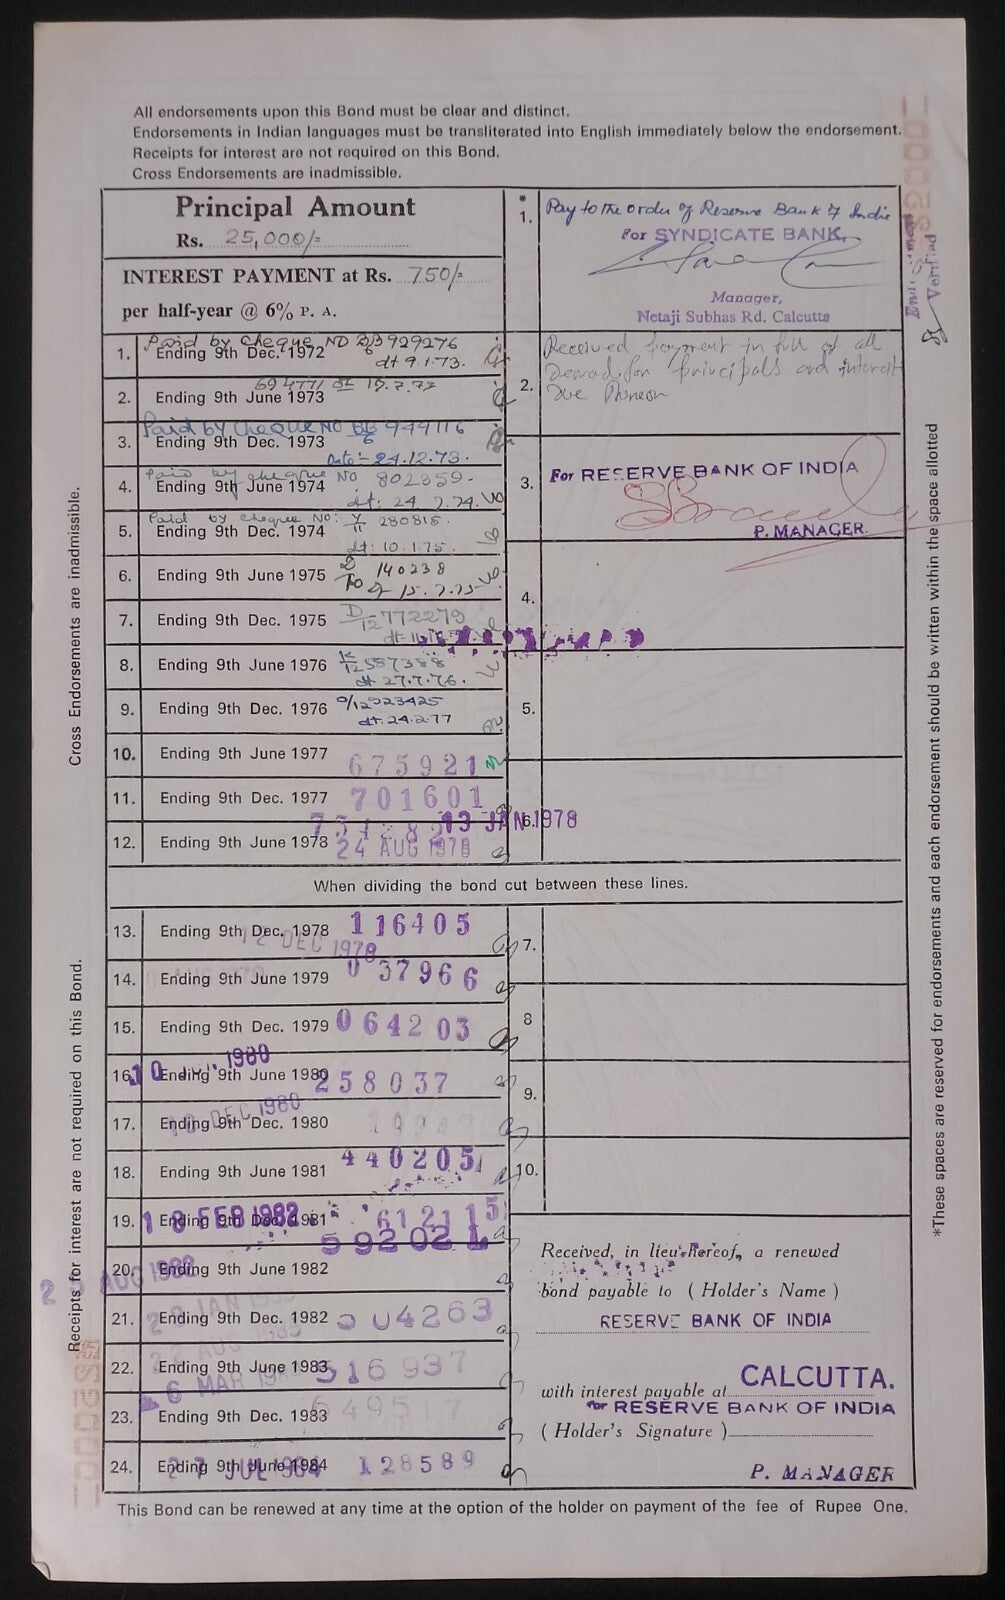 All endorsements upon this Bond must be clear and distinct.
Endorsements in Indian languages must be transliterated into English immediately below the endorsement.
Receipts for interest are not required on this Bond.
Cross Endorsements are inadmissible.
Principal Amount
Rs. 25,000/=
INTEREST PAYMENT at Rs. 750/-
per half-year @ 6% P. A.
Paid by Cheque NO 929276
1. Ending 9th Dec. 1972
dt 9.1.73.
2. Ending 9th June 1973
Paid by Cheque NO
3. Ending 9th Dec. 1973
Date:- 24.12.73.
Paid by cheque No 802359.
4. Ending 9th June 1974
Paid by cheque No: 280815.
5. Ending 9th Dec. 1974
dt: 10.1.75.
6. Ending 9th June 1975 140238
7. Ending 9th Dec. 1975 D/12 772279
8. Ending 9th June 1976 K/12 557388
dt 27.7.76.
9. Ending 9th Dec. 1976 923425
dt. 24.2.77
10. Ending 9th June 1977 675921
11. Ending 9th Dec. 1977 701601
13 JAN 1978
12. Ending 9th June 1978
24 AUG 1978
When dividing the bond cut between these lines.
13. Ending 9th Dec. 1978 116405
12 DEC 1978
14. Ending 9th June 1979 037966
15. Ending 9th Dec. 1979 064203
1980
16. Ending 9th June 1980 258037
DEC 1980
17. Ending 9th Dec. 1980
18. Ending 9th June 1981 440205
19. Ending 9th Dec. 1981 612115
18 FEB 1982
592021
20. Ending 9th June 1982
AUG 1982
21. Ending 9th Dec. 1982 04263
JAN
22. Ending 9th June 1983 516937
AUG
6 MAR
23. Ending 9th Dec. 1983
24. Ending 9th June 1984 128589
27 JUL 1984
1. Pay to the order of Reserve Bank of India
For SYNDICATE BANK,
Manager,
Netaji Subhas Rd. Calcutta
Verified
Received payment in full of all
2. principals and interest
due
3. For RESERVE BANK OF INDIA
P. MANAGER.
4.
5.
6.
7.
8
9.
10.
Received, in lieu hereof, a renewed
bond payable to ( Holder's Name )
RESERVE BANK OF INDIA
with interest payable at CALCUTTA.
For RESERVE BANK OF INDIA
( Holder's Signature )
P. MANAGER
This Bond can be renewed at any time at the option of the holder on payment of the fee of Rupee One.
Cross Endorsements are inadmissible.
Receipts for interest are not required on this Bond.
*These spaces are reserved for endorsements and each endorsement should be written within the space allotted